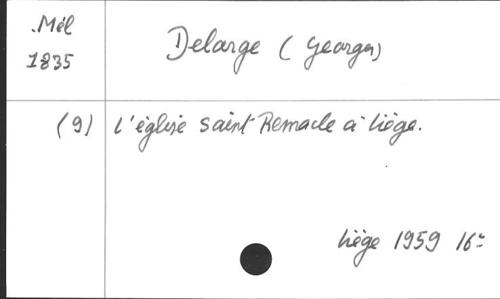 Mél
1835
Delarge (Georges)
(9) L'église Saint Remacle à Liége.
Liége 1959 16°